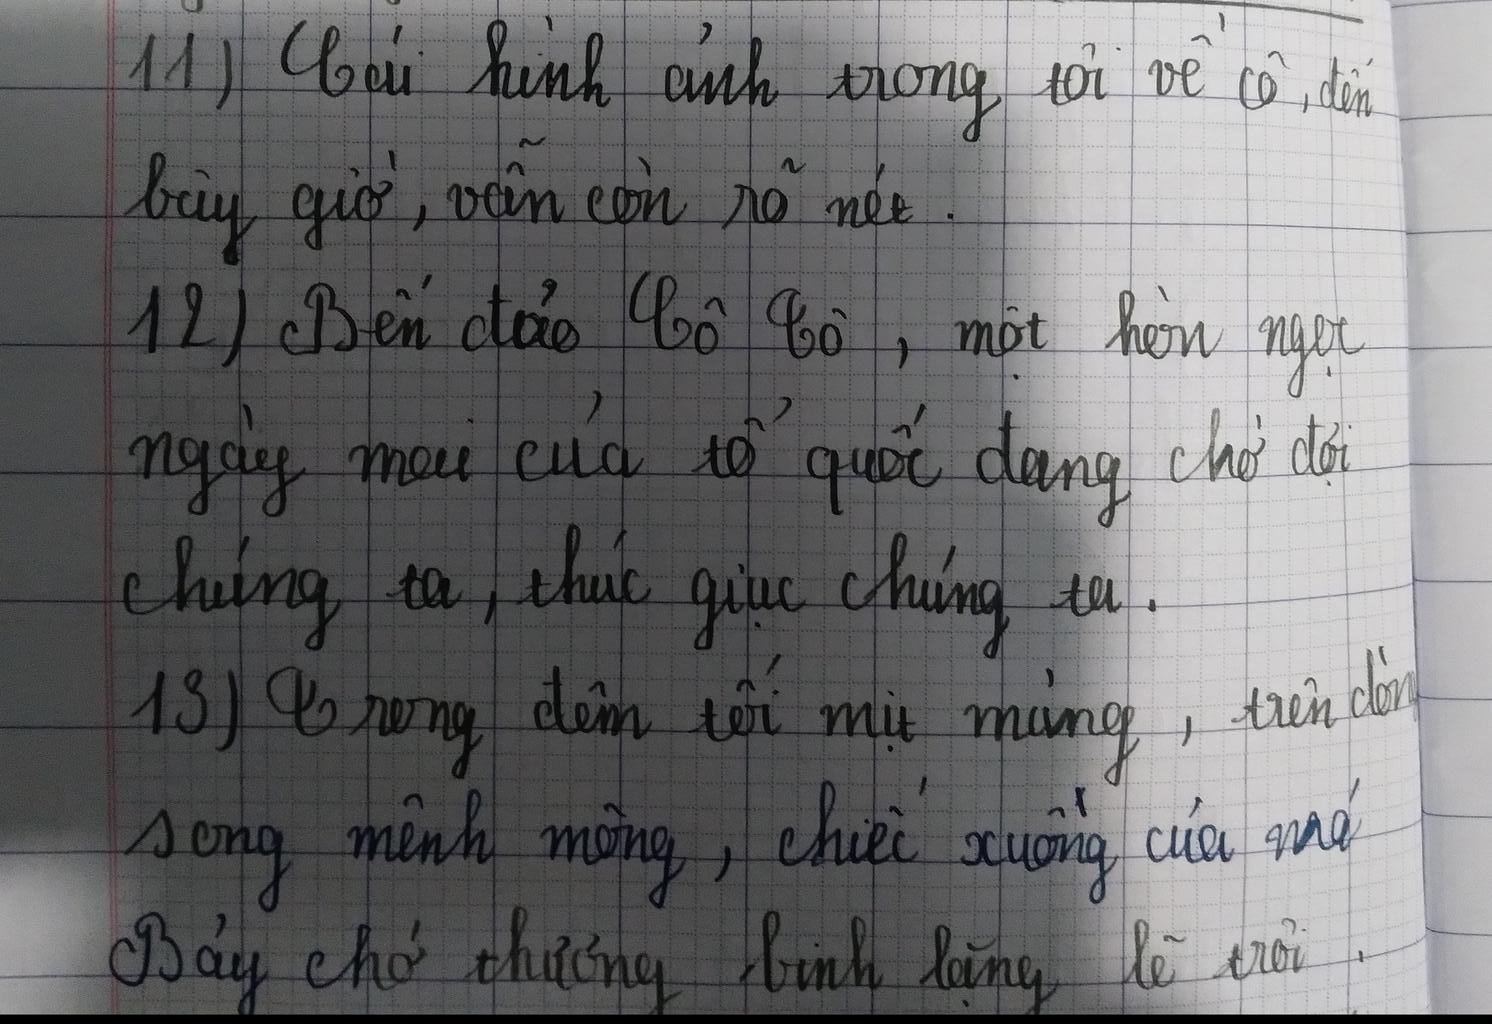 11) Cái hình ảnh trong tôi về cô, đến
bây giờ, vẫn còn rõ nét.
12) Bến đảo Cô Tô, một hòn ngọc
ngày mai của tổ quốc đang chờ đợi
chúng ta, thúc giục chúng ta.
13) Trong đêm tối mịt mùng, trên dòng
sông mênh mông, chiếc xuồng của má
Bảy chở thương binh lặng lẽ trôi.